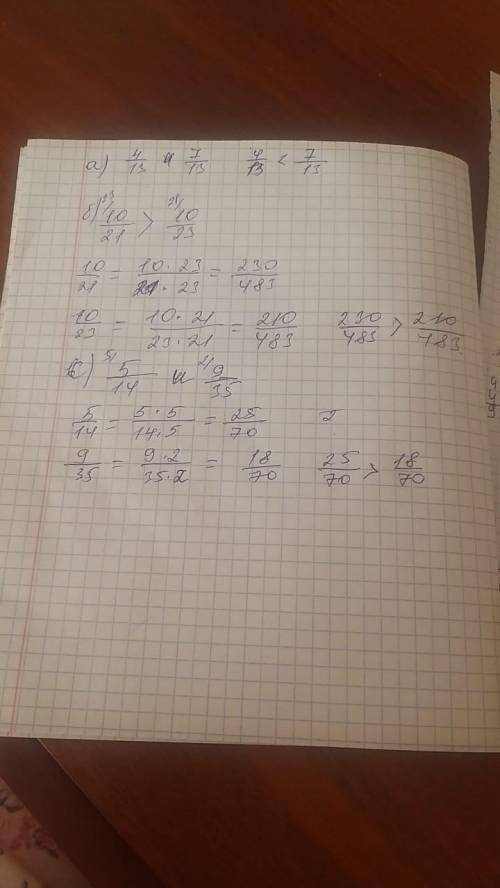 а) 4/13 и 7/13 4/13 < 7/13
б) 23/ 10/21 > 21/ 10/23
10/21 = 10·23/21·23 = 230/483
10/23 = 10·21/23·21 = 210/483 230/483 > 210/483
с) 5/ 5/14 и 2/ 9/35
5/14 = 5·5/14·5 = 25/70 2
9/35 = 9·2/35·2 = 18/70 25/70 > 18/70